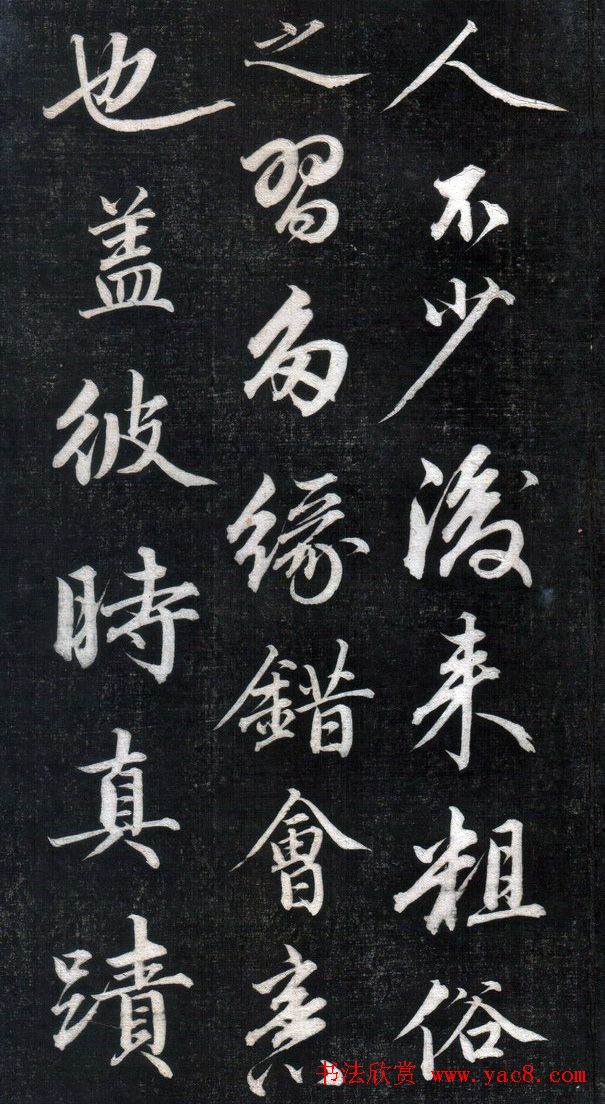 人不少後来粗俗
之習多緣錯會
也盖彼時真蹟
书法欣赏 www.yac8.com